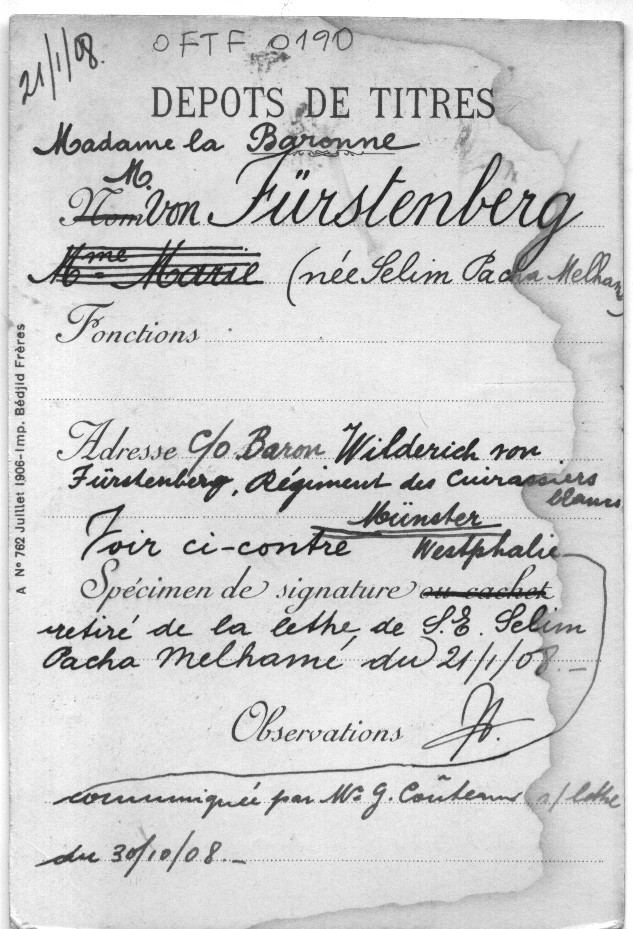 21/1/08.
OFTF 0190
DEPOTS DE TITRES
Madame la Baronne
M.
Nom von Fürstenberg
Mme Marie (née Selim Pacha Melhamé)
Fonctions
Adresse c/o Baron Wilderich von
Fürstenberg, Régiment des Cuirassiers
blancs
Münster
Voir ci-contre Westphalie
Spécimen de signature ou cachet
retiré de la lettre de S.E. Selim
Pacha Melhamé du 21/1/08 –
Observations
communiquée par Mr G. s/ lettre
du 30/10/08. –
A Nº 762 Juillet 1906-Imp. Bédjid Frères